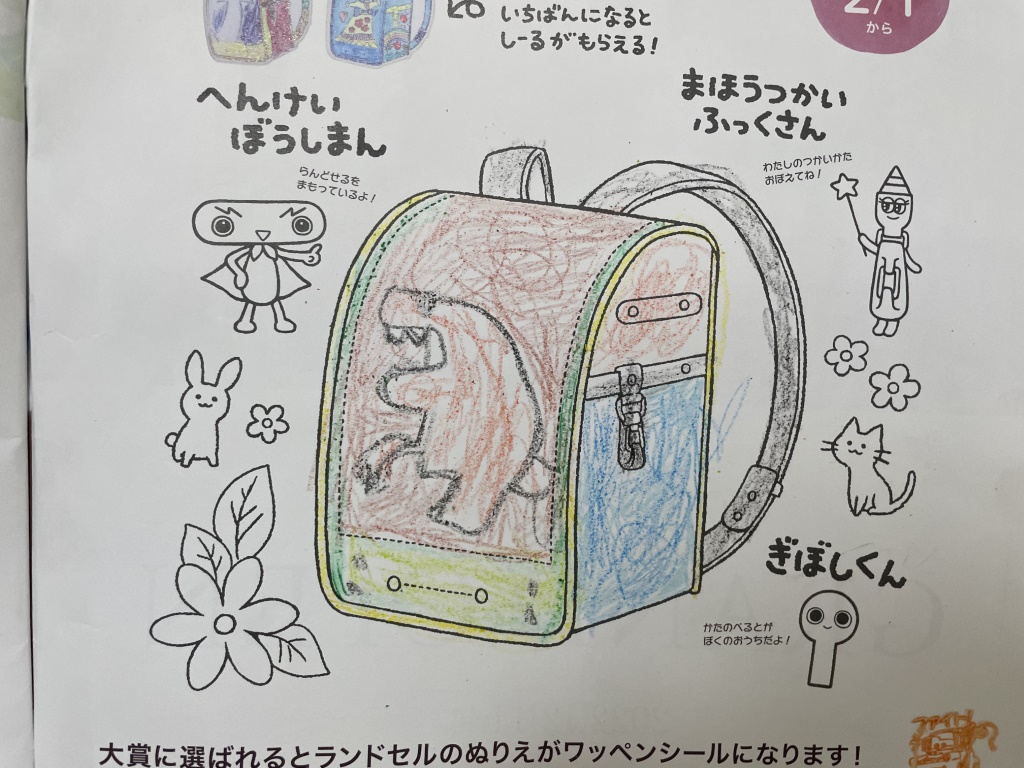 いちばんになると
しーるがもらえる！
2/1
から
へんけい
ぼうしまん
らんどせるを
まもっているよ！
まほうつかい
ふっくさん
わたしのつかいかた
おぼえてね！
ぎぼしくん
かたのべるとが
ぼくのおうちだよ！
大賞に選ばれるとランドセルのぬりえがワッペンシールになります！